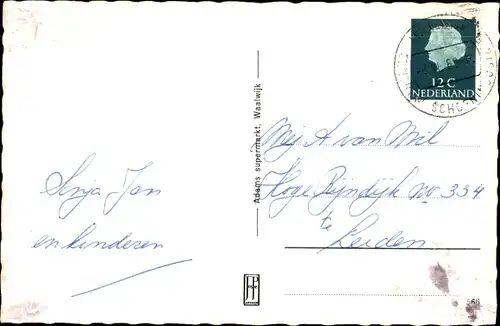 12 C
NEDERLAND
Mej A van Mil
Hoge Rijndijk no 334
te
Leiden
Anja Jan
en kinderen
Adams supermarkt, Waalwijk
566